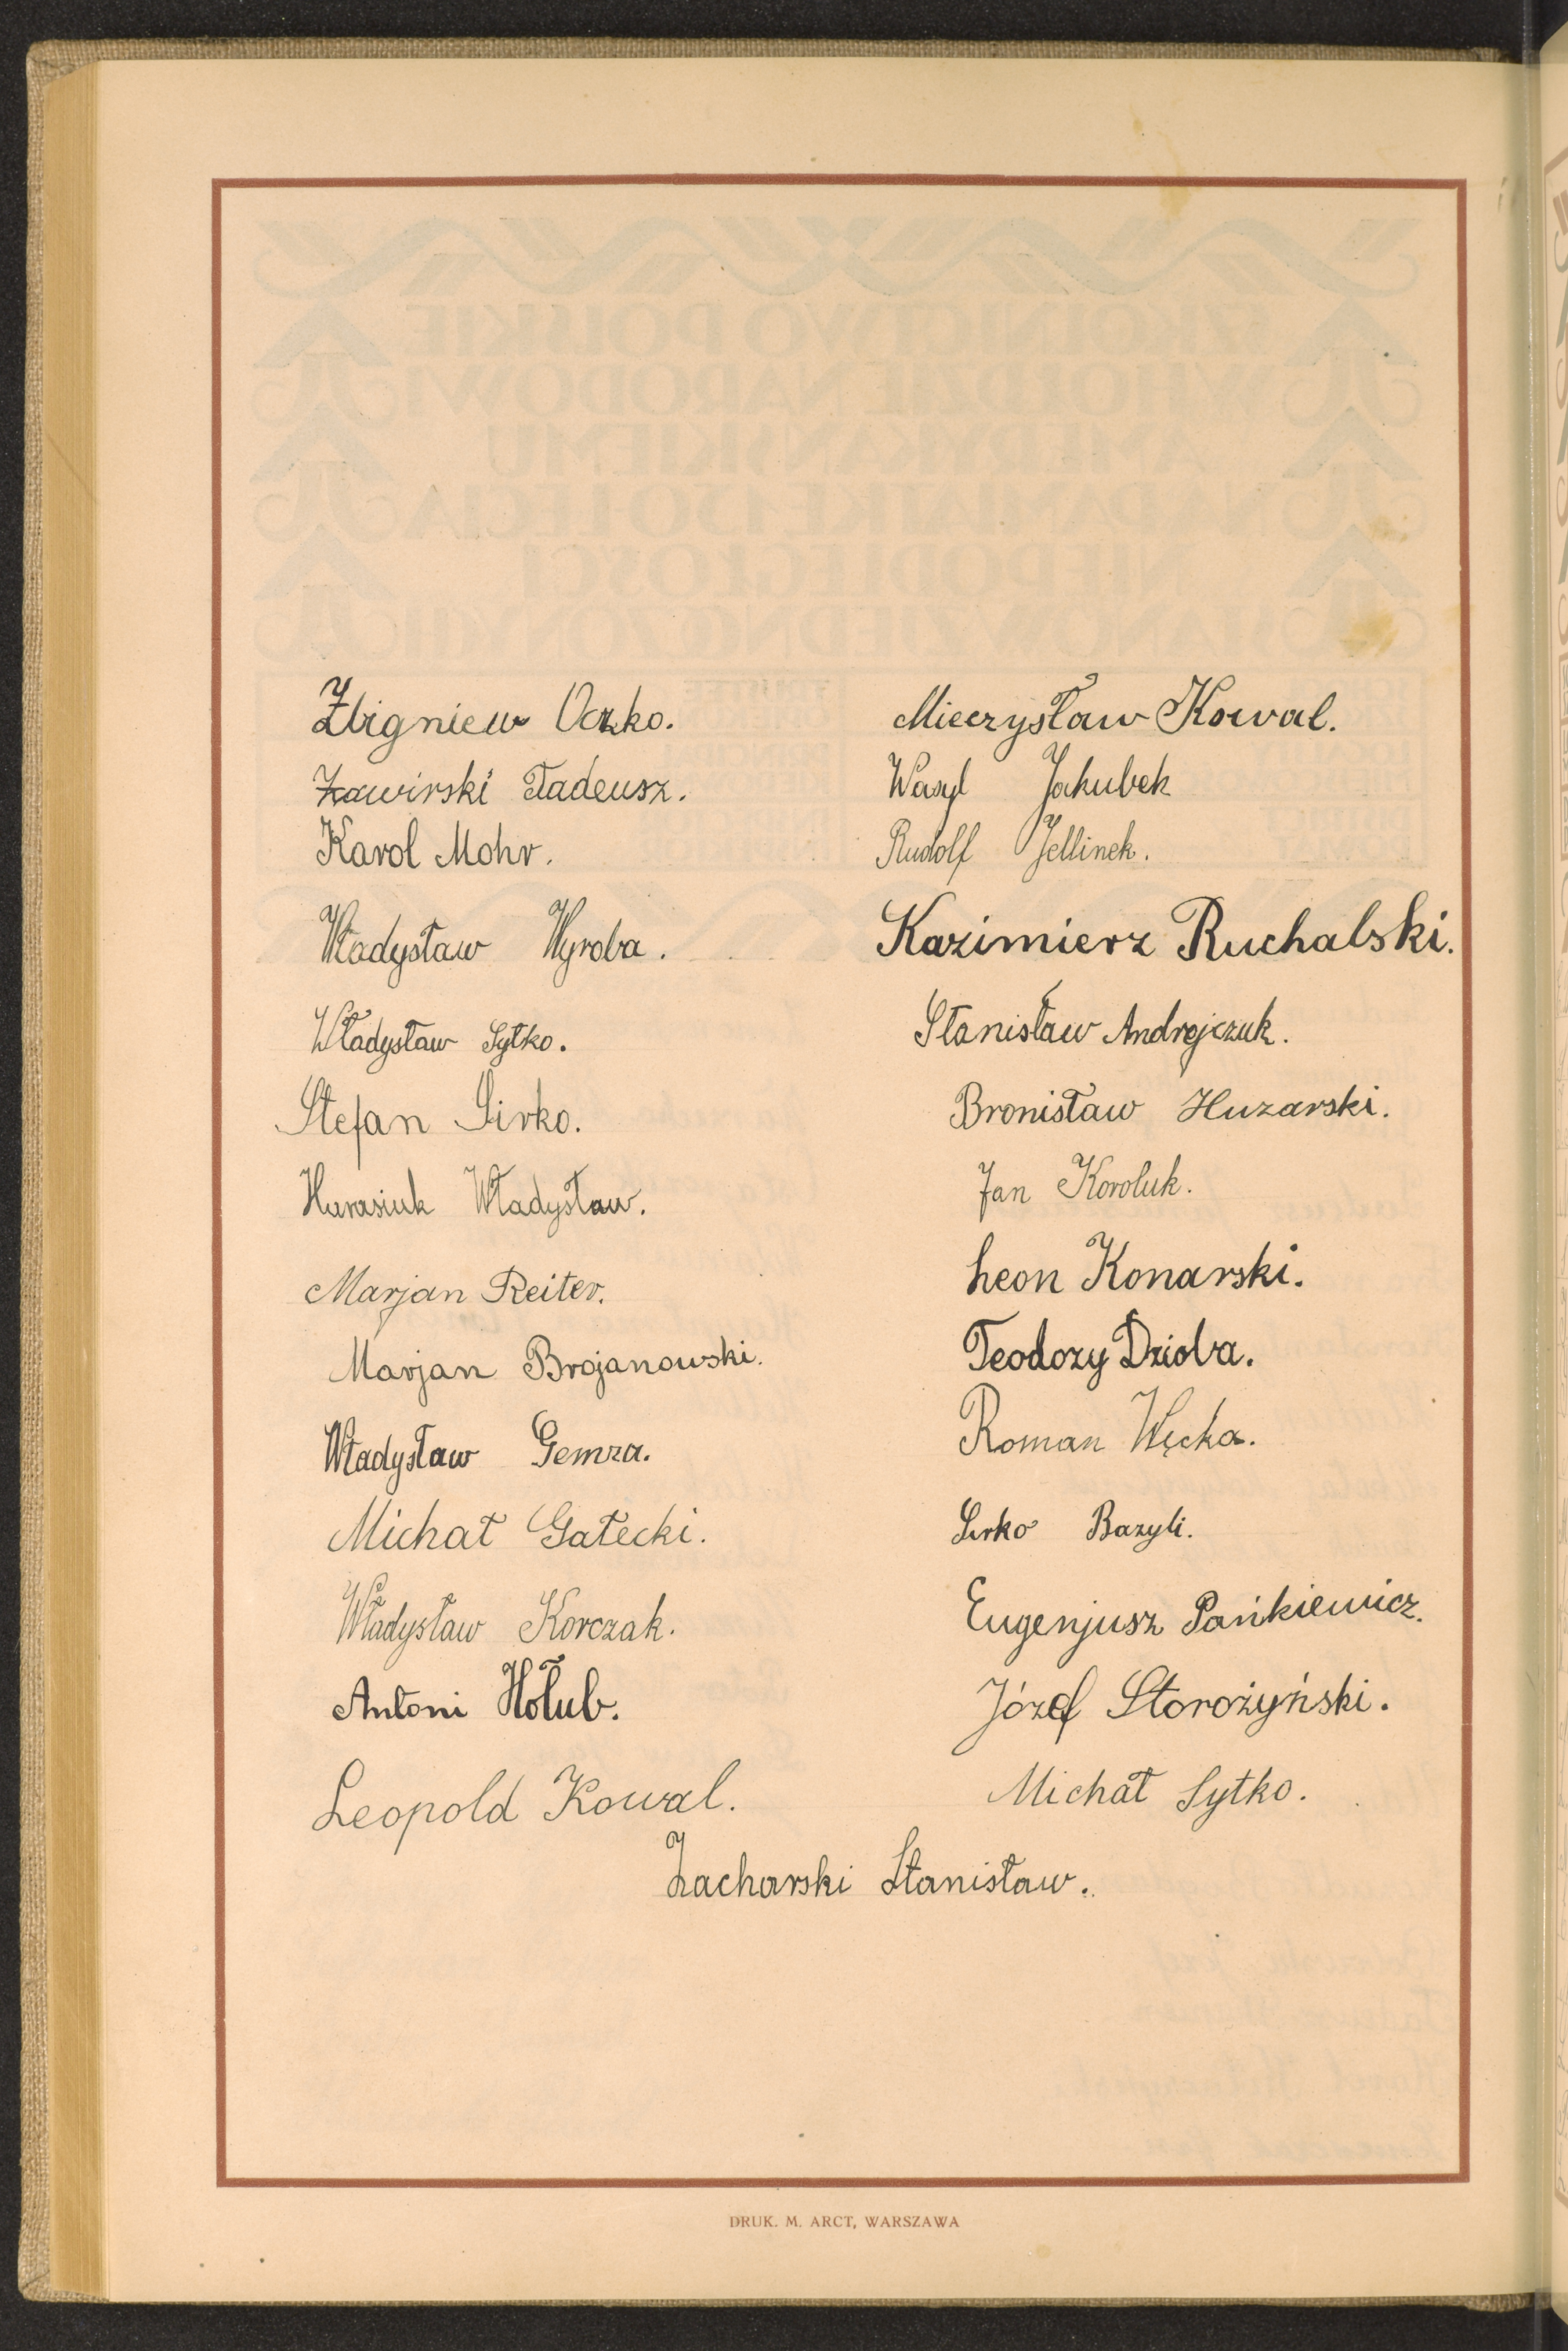 Zbigniew Oczko.
Zawirski Tadeusz.
Karol Mohr.
Władysław Wyroba.
Władysław Sytko.
Stefan Sirko.
Harasiuk Władysław.
Marjan Reiter.
Marjan Brojanowski.
Władysław Gemza.
Michał Gałecki.
Władysław Korczak.
Antoni Hołub.
Leopold Kowal.
Mieczysław Kowal.
Wasyl Jakubek
Rudolf Jellinek.
Kazimierz Ruchalski.
Stanisław Andrejczuk.
Bronisław Huzarski.
Jan Koroluk.
Leon Konarski.
Teodozy Dzioba.
Roman Węcka.
Sirko Bazyli.
Eugenjusz Pańkiewicz.
Józef Storożyński.
Michał Sytko.
Zacharski Stanisław.
DRUK. M. ARCT, WARSZAWA